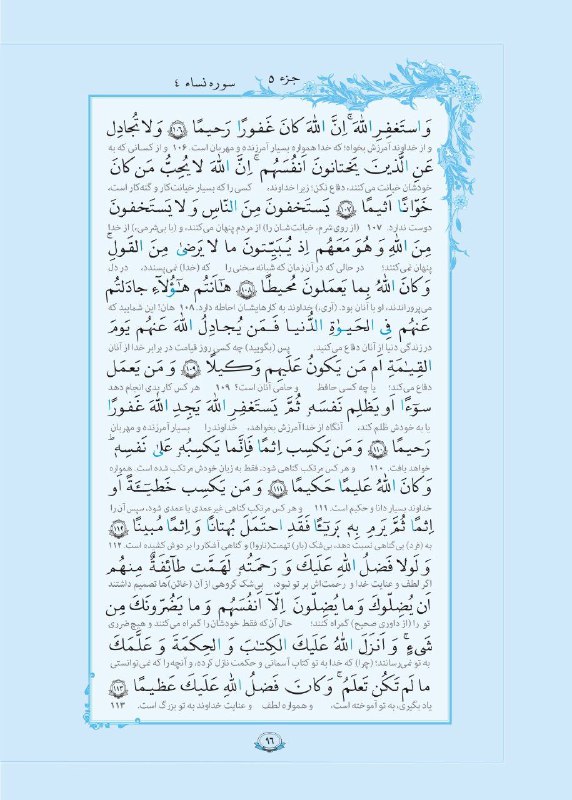 جزء ۵
سوره نساء ۴
وَ استَغفِرِ اللّٰهَ ۚ اِنَّ اللّٰهَ کانَ غَفورًا رَحیمًا ﴿۱۰۶﴾ وَ لا تُجادِل
و از خداوند آمرزش بخواه؛ که خدا همواره بسیار آمرزنده و مهربان است. ۱۰۶ و از کسانی که به
عَنِ الَّذینَ یَختانونَ اَنفُسَهُم ۚ اِنَّ اللّٰهَ لا یُحِبُّ مَن کانَ
خودشان خیانت می‌کنند، دفاع نکن؛ زیرا خداوند، کسی را که بسیار خیانت‌کار و گنه‌کار است،
خَوّانًا اَثیمًا ﴿۱۰۷﴾ یَستَخفونَ مِنَ النّاسِ وَ لا یَستَخفونَ
دوست ندارد. ۱۰۷ (از روی شرم، خیانت‌شان را) از مردم پنهان می‌کنند، و (با بی‌شرمی،) از خدا
مِنَ اللّٰهِ وَ هُوَ مَعَهُم اِذ یُبَیِّتونَ ما لا یَرضیٰ مِنَ القَولِ ۚ
پنهان نمی‌کنند؛ در حالی که در آن زمان که شبانه سخنی را که (خدا) نمی‌پسندد، در دل
وَ کانَ اللّٰهُ بِما یَعمَلونَ مُحیطًا ﴿۱۰۸﴾ هٰاَنتُم هٰؤُلاءِ جادَلتُم
می‌پروراندند، او با آنان بود. (آری،) خداوند به کارهایشان احاطه دارد. ۱۰۸ هان! این شمایید که
عَنهُم فِی الحَیوٰةِ الدُّنیا فَمَن یُجادِلُ اللّٰهَ عَنهُم یَومَ
در زندگی دنیا از آنان دفاع می‌کنید. پس (بگویید) چه کسی روز قیامت در برابر خدا از آنان
القِیٰمَةِ اَم مَن یَکونُ عَلَیهِم وَکیلًا ﴿۱۰۹﴾ وَ مَن یَعمَل
دفاع می‌کند؛ یا چه کسی حافظ و حامی آنان است؟ ۱۰۹ هر کس کار بدی انجام دهد
سوءًا اَو یَظلِم نَفسَهُ ثُمَّ یَستَغفِرِ اللّٰهَ یَجِدِ اللّٰهَ غَفورًا
یا به خودش ظلم کند، آنگاه از خدا آمرزش بخواهد، خداوند را بسیار آمرزنده و مهربان
رَحیمًا ﴿۱۱۰﴾ وَ مَن یَکسِب اِثمًا فَاِنَّما یَکسِبُهُ عَلیٰ نَفسِهِ ۚ
خواهد یافت. ۱۱۰ و هر کس مرتکب گناهی شود، فقط به زیان خودش مرتکب شده است. همواره
وَ کانَ اللّٰهُ عَلیمًا حَکیمًا ﴿۱۱۱﴾ وَ مَن یَکسِب خَطیـَٔةً اَو
خداوند بسیار دانا و حکیم است. ۱۱۱ و هر کس مرتکب گناهی غیر عمدی یا عمدی شود، سپس آن را
اِثمًا ثُمَّ یَرمِ بِهِ بَریـًٔا فَقَدِ احتَمَلَ بُهتانًا وَ اِثمًا مُبینًا ﴿۱۱۲﴾
به (فرد) بی‌گناهی نسبت دهد، بی‌شک (بار) تهمت(ناروا) و گناهی آشکار را بر دوش کشیده است. ۱۱۲
وَ لَولا فَضلُ اللّٰهِ عَلَیکَ وَ رَحمَتُهُ لَهَمَّت طائِفَةٌ مِنهُم
اگر لطف و عنایت خدا و رحمت‌اش بر تو نبود، بی‌شک گروهی از آن (خائن)ها تصمیم داشتند
اَن یُضِلّوکَ وَ ما یُضِلّونَ اِلّا اَنفُسَهُم وَ ما یَضُرّونَکَ مِن
تو را (از داوری صحیح) گمراه کنند؛ حال آن که فقط خودشان را گمراه می‌کنند و هیچ ضرری
شَیءٍ ۚ وَ اَنزَلَ اللّٰهُ عَلَیکَ الکِتٰبَ وَ الحِکمَةَ وَ عَلَّمَکَ
به تو نمی‌رسانند؛ (چرا) که خدا به تو کتاب آسمانی و حکمت نازل کرده، و آنچه را که نمی‌توانستی
ما لَم تَکُن تَعلَمُ ۚ وَ کانَ فَضلُ اللّٰهِ عَلَیکَ عَظیمًا ﴿۱۱۳﴾
یاد بگیری، به تو آموخته است، و همواره لطف و عنایت خداوند به تو بزرگ است. ۱۱۳
۹۶